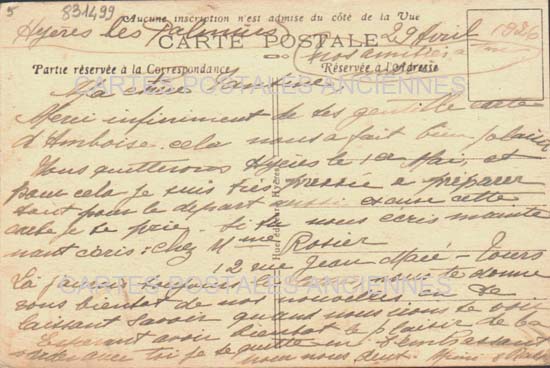 5 831499
Aucune inscription n'est admise du côté de la Vue
Hyères les Palmiers 29 Avril 1926
CARTE POSTALE
Partie réservée à la Correspondance Réservée à l'Adresse
CARTES POSTALES ANCIENNES
Ma chère
Merci infiniment de ta gentille carte
d'Amboise. cela nous a fait bien plaisir
Nous quitterons Hyères le 1er Mai, et
pour cela je suis très pressée à préparer
tout pour le départ aussi excuse cette
carte je te prie. Si tu nous écris mainte
nant écris: chez Mme Rosier
2 rue Jean Macé - Tours
CARTES POSTALES ANCIENNES
Là je te donne
rons bientôt de nos nouvelles en te
laissant savoir quand nous irons te voir
Espérant avoir bientôt le plaisir de
avec toi je te quitte en t'embrassant